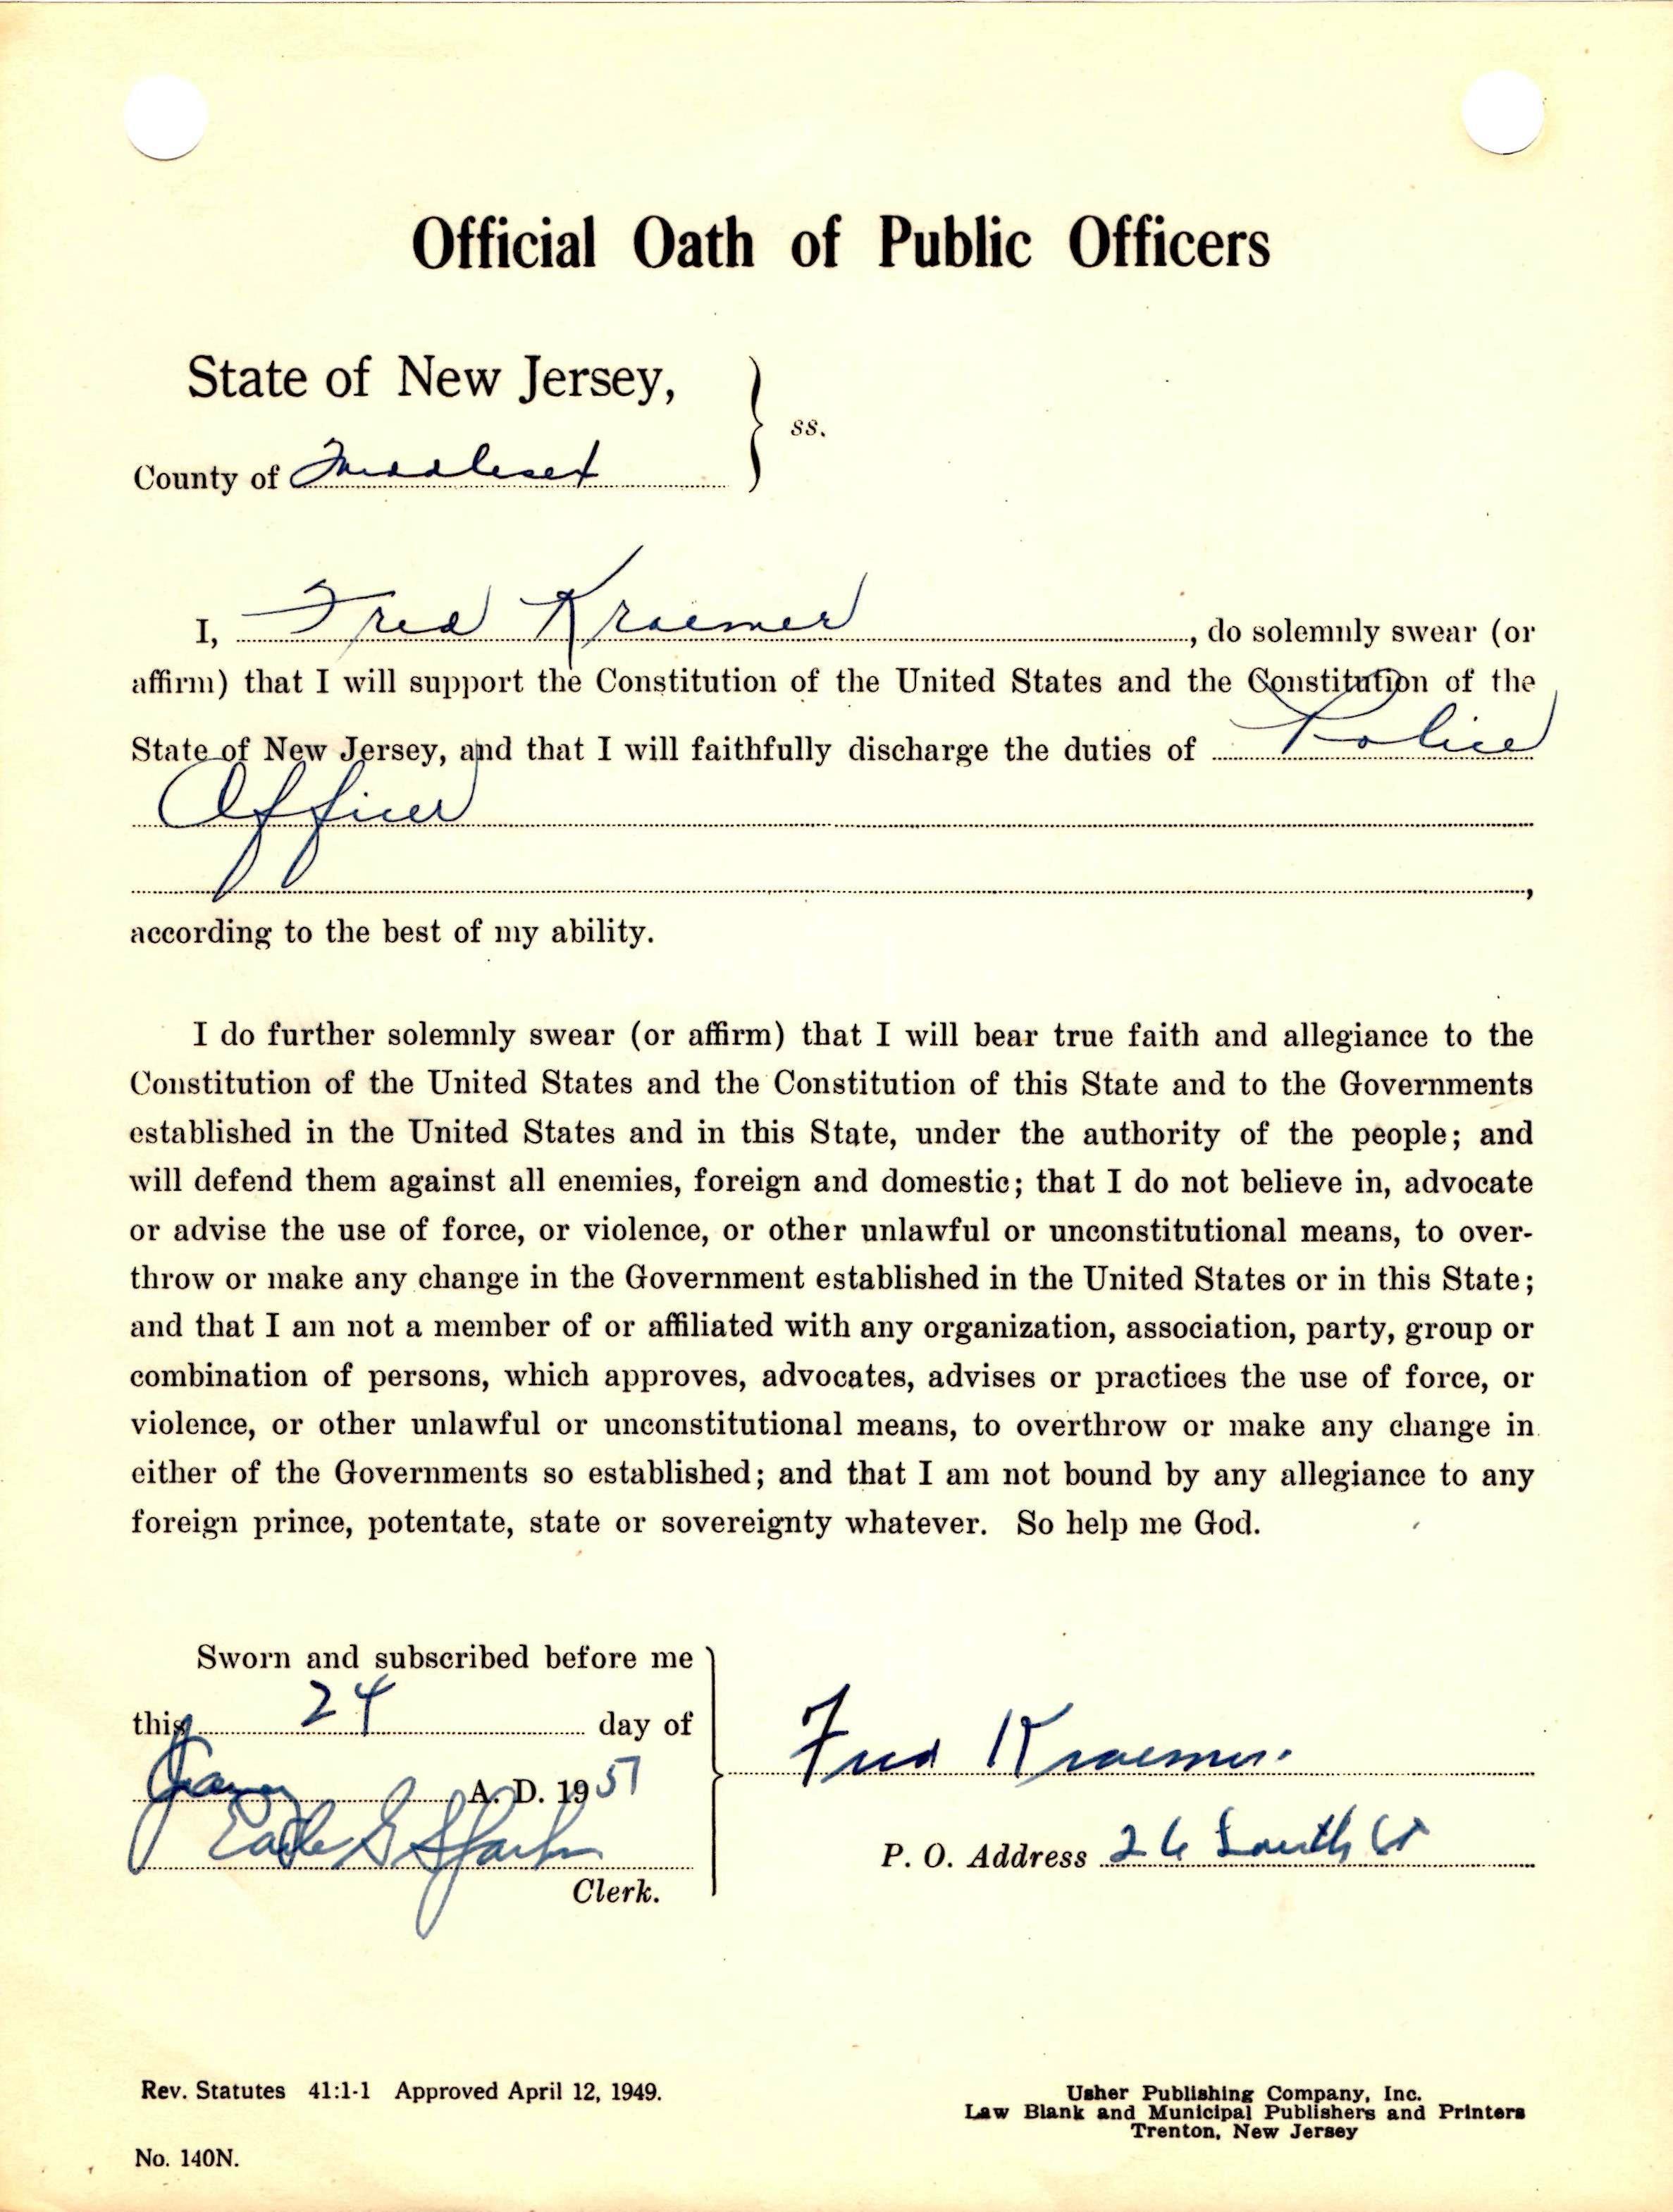 Official Oath of Public Officers
State of New Jersey,
ss.
County of Middlesex
I, Fred Kraemer, do solemnly swear (or
affirm) that I will support the Constitution of the United States and the Constitution of the
State of New Jersey, and that I will faithfully discharge the duties of Police
Officer
,
according to the best of my ability.
I do further solemnly swear (or affirm) that I will bear true faith and allegiance to the
Constitution of the United States and the Constitution of this State and to the Governments
established in the United States and in this State, under the authority of the people; and
will defend them against all enemies, foreign and domestic; that I do not believe in, advocate
or advise the use of force, or violence, or other unlawful or unconstitutional means, to over-
throw or make any change in the Government established in the United States or in this State;
and that I am not a member of or affiliated with any organization, association, party, group or
combination of persons, which approves, advocates, advises or practices the use of force, or
violence, or other unlawful or unconstitutional means, to overthrow or make any change in
either of the Governments so established; and that I am not bound by any allegiance to any
foreign prince, potentate, state or sovereignty whatever. So help me God.
Sworn and subscribed before me
this 24 day of
Fred Kraemer.
A. D. 1951
Earle G
P. O. Address 26 South St
Clerk.
Rev. Statutes 41:1-1 Approved April 12, 1949.
Usher Publishing Company, Inc.
Law Blank and Municipal Publishers and Printers
Trenton, New Jersey
No. 140N.